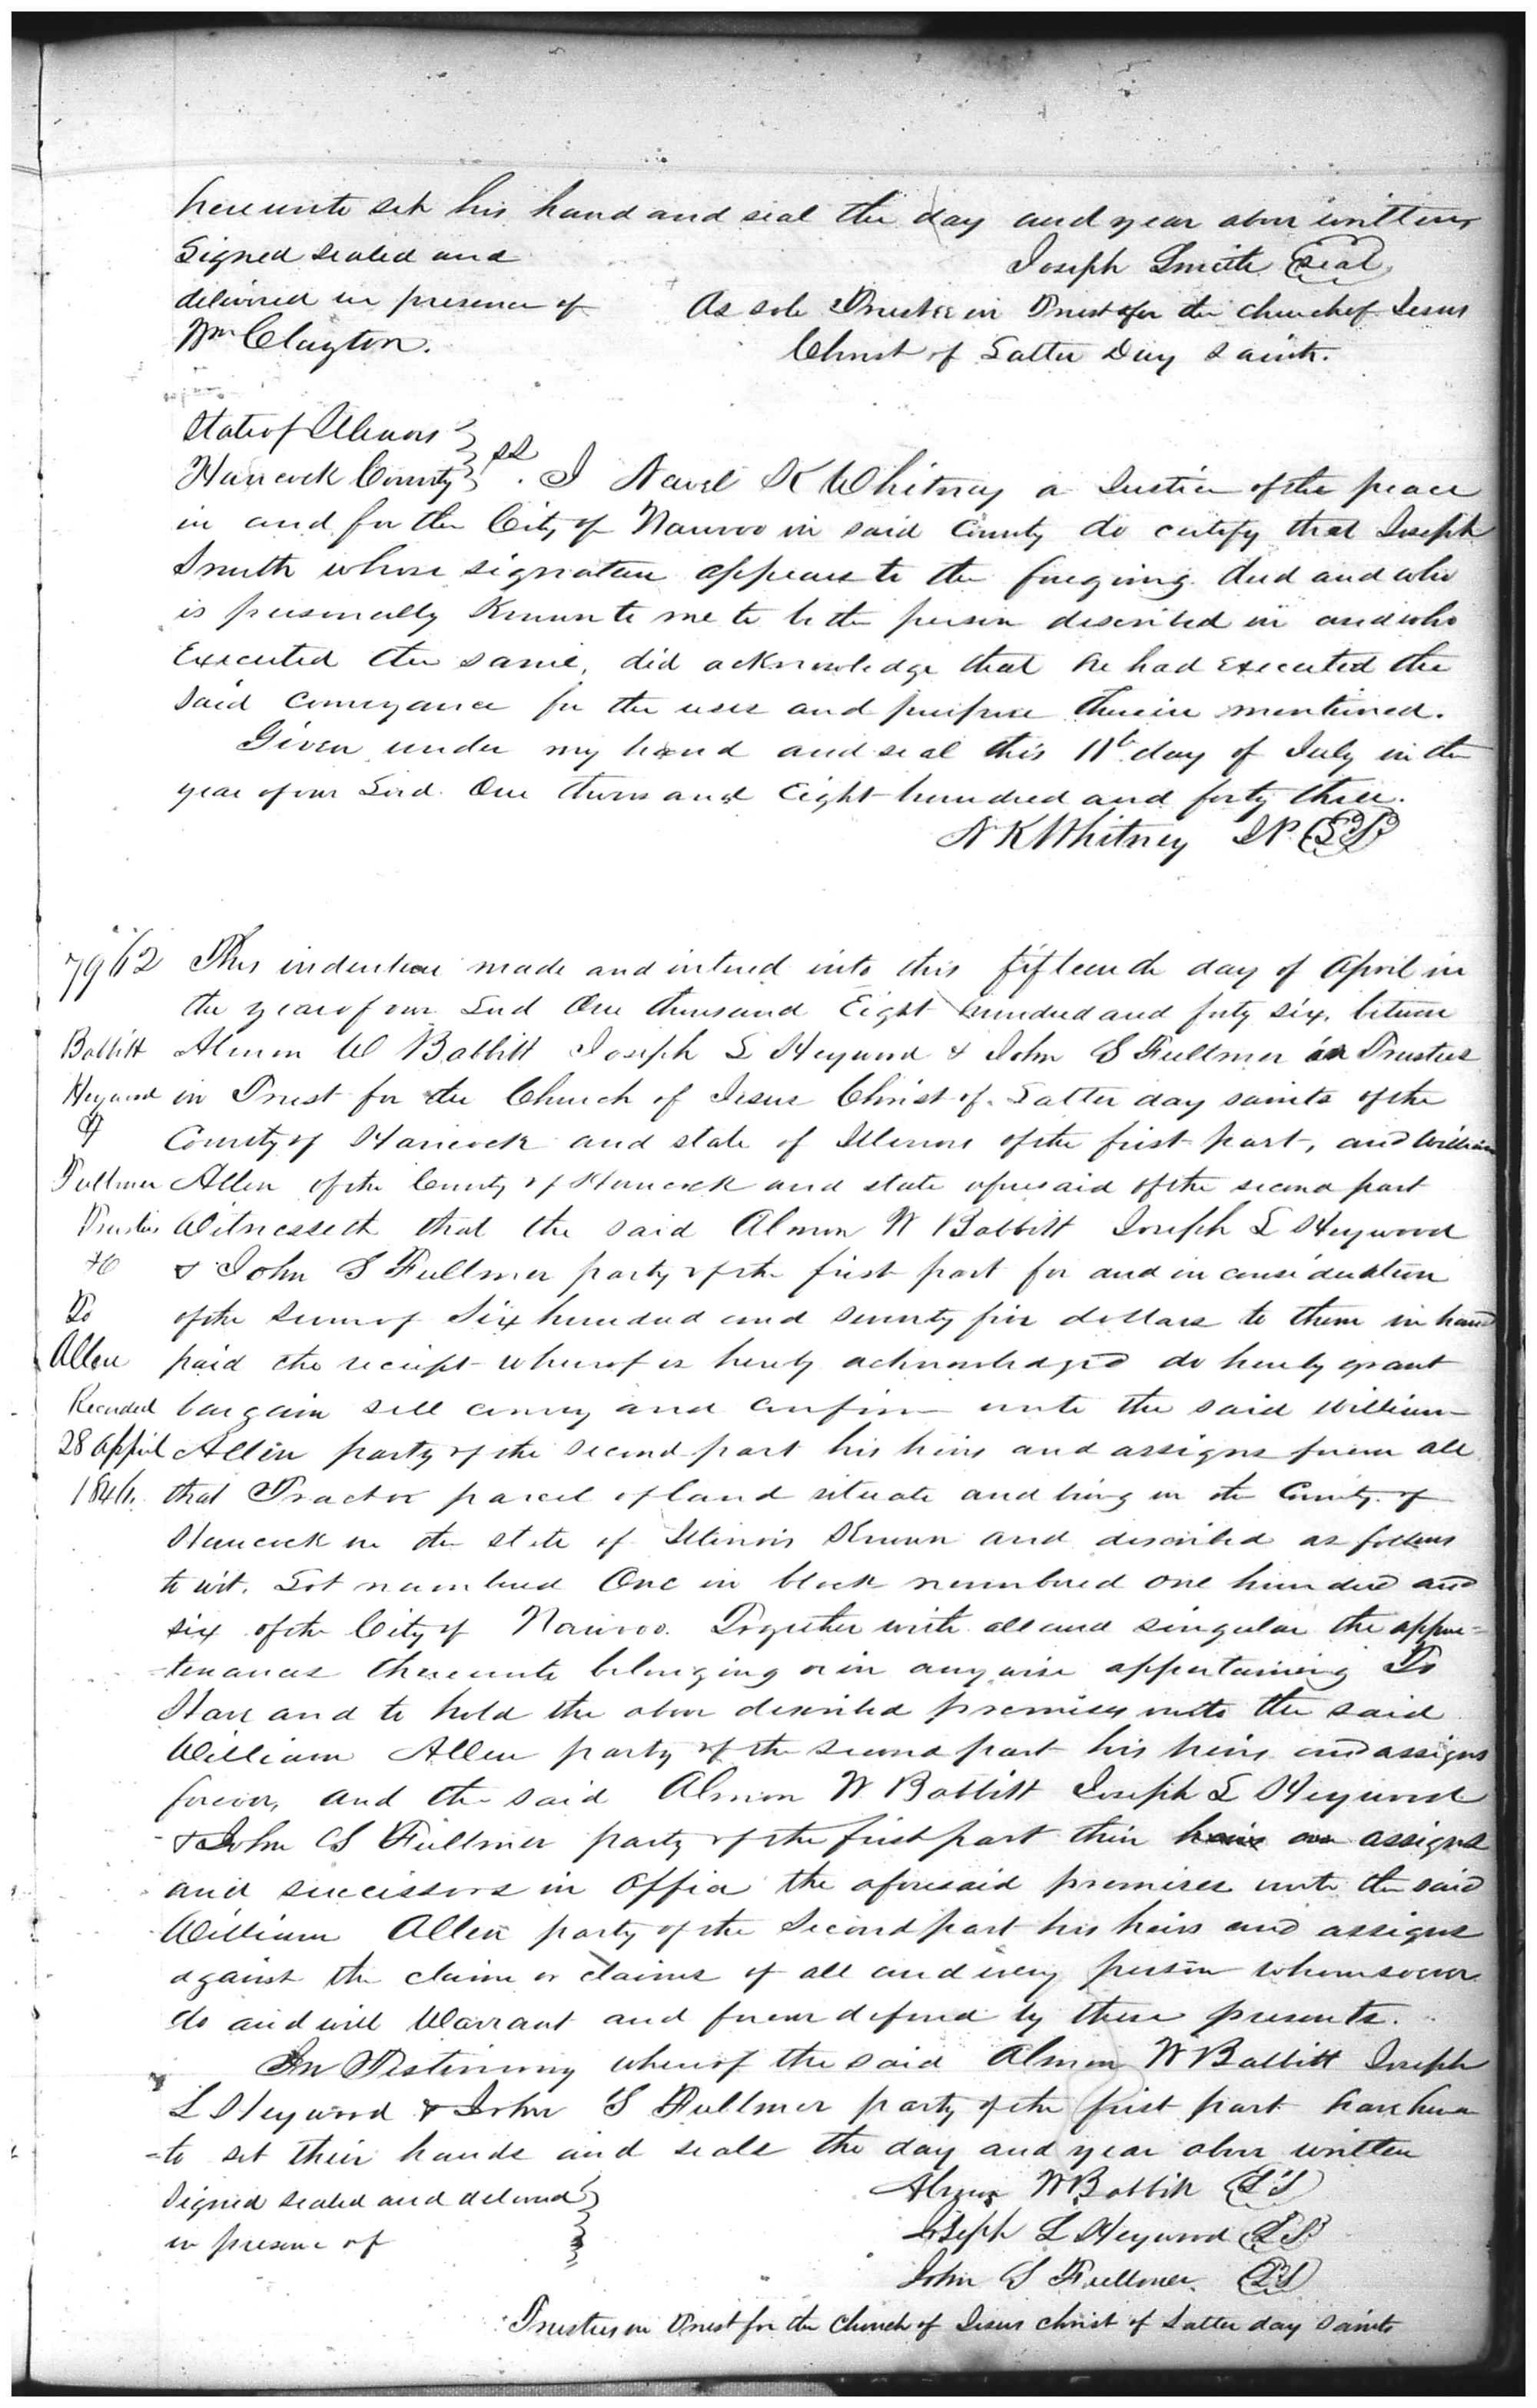 hereunto set his hand and seal the day and year above written
Signed sealed and
Joseph Smith (seal)
delivered in presence of
As sole Trustee in Trust for the church of Jesus
Wm Clayton.
Christ of Latter Day Saints.
State of Illinois }
Hancock County } ss. I Newel K Whitney a Justice of the peace
in and for the City of Nauvoo in said County do certify that Joseph
Smith whose signature appears to the foregoing deed and who
is personally Known to me to be the person described in and who
Executed the same, did acknowledge that he had Executed the
said Conveyance for the uses and purpose therein mentioned.
Given under my hand and seal this 11th day of July in the
year of our Lord One thousand Eight hundred and forty three.
N K Whitney J P. (LS)
7962 This indenture made and entered into this fifteenth day of April in
the year of our Lord One thousand Eight hundred and forty six, between
Babbitt Almon W Babbitt Joseph L Heywood & John S Fullmer as Trustees
Heywood in Trust for the Church of Jesus Christ of Latter day saints of the
& County of Hancock and state of Illinois of the first part, and William
Fullmer Allen of the County of Hancock and state aforesaid of the second part
Trustees Witnesseth that the said Almon W Babbitt Joseph L Heywood
& John S Fullmer party of the first part for and in consideration
To of the sum of Six hundred and seventy five dollars to them in hand
Allen paid the receipt whereof is hereby acknowledged do hereby grant
Recorded bargain sell convey and confirm unto the said William
28 April Allen party of the second part his heirs and assigns forever all
1846. that Tract or parcel of land situate and being in the County of
Hancock in the state of Illinois Known and described as follows
to wit. Lot numbered One in block numbered one hundred and
six of the City of Nauvoo. Together with all and singular the appur=
-tenances thereunto belonging or in anywise appertaining To
Have and to hold the above described premises unto the said
William Allen party of the second part his heirs and assigns
forever, and the said Almon W Babbitt Joseph L Heywood
& John S Fullmer party of the first part their heirs an assigns
and successors in office the aforesaid premises unto the said
William Allen party of the Second part his heirs and assigns
against the claim or claims of all and every person whomsoever
do and will Warrant and forever defend by these presents.
In Testimony whereof the said Almon W Babbitt Joseph
L Heywood & John S Fullmer party of the first part have hereun
-to set their hands and seals the day and year above written
Signed sealed and delivered }
Almon W Babbitt (LS)
in presence of }
Joseph L Heywood (LS)
John S Fullmer. (LS)
Trustees in Trust for the Church of Jesus christ of Latter day Saints